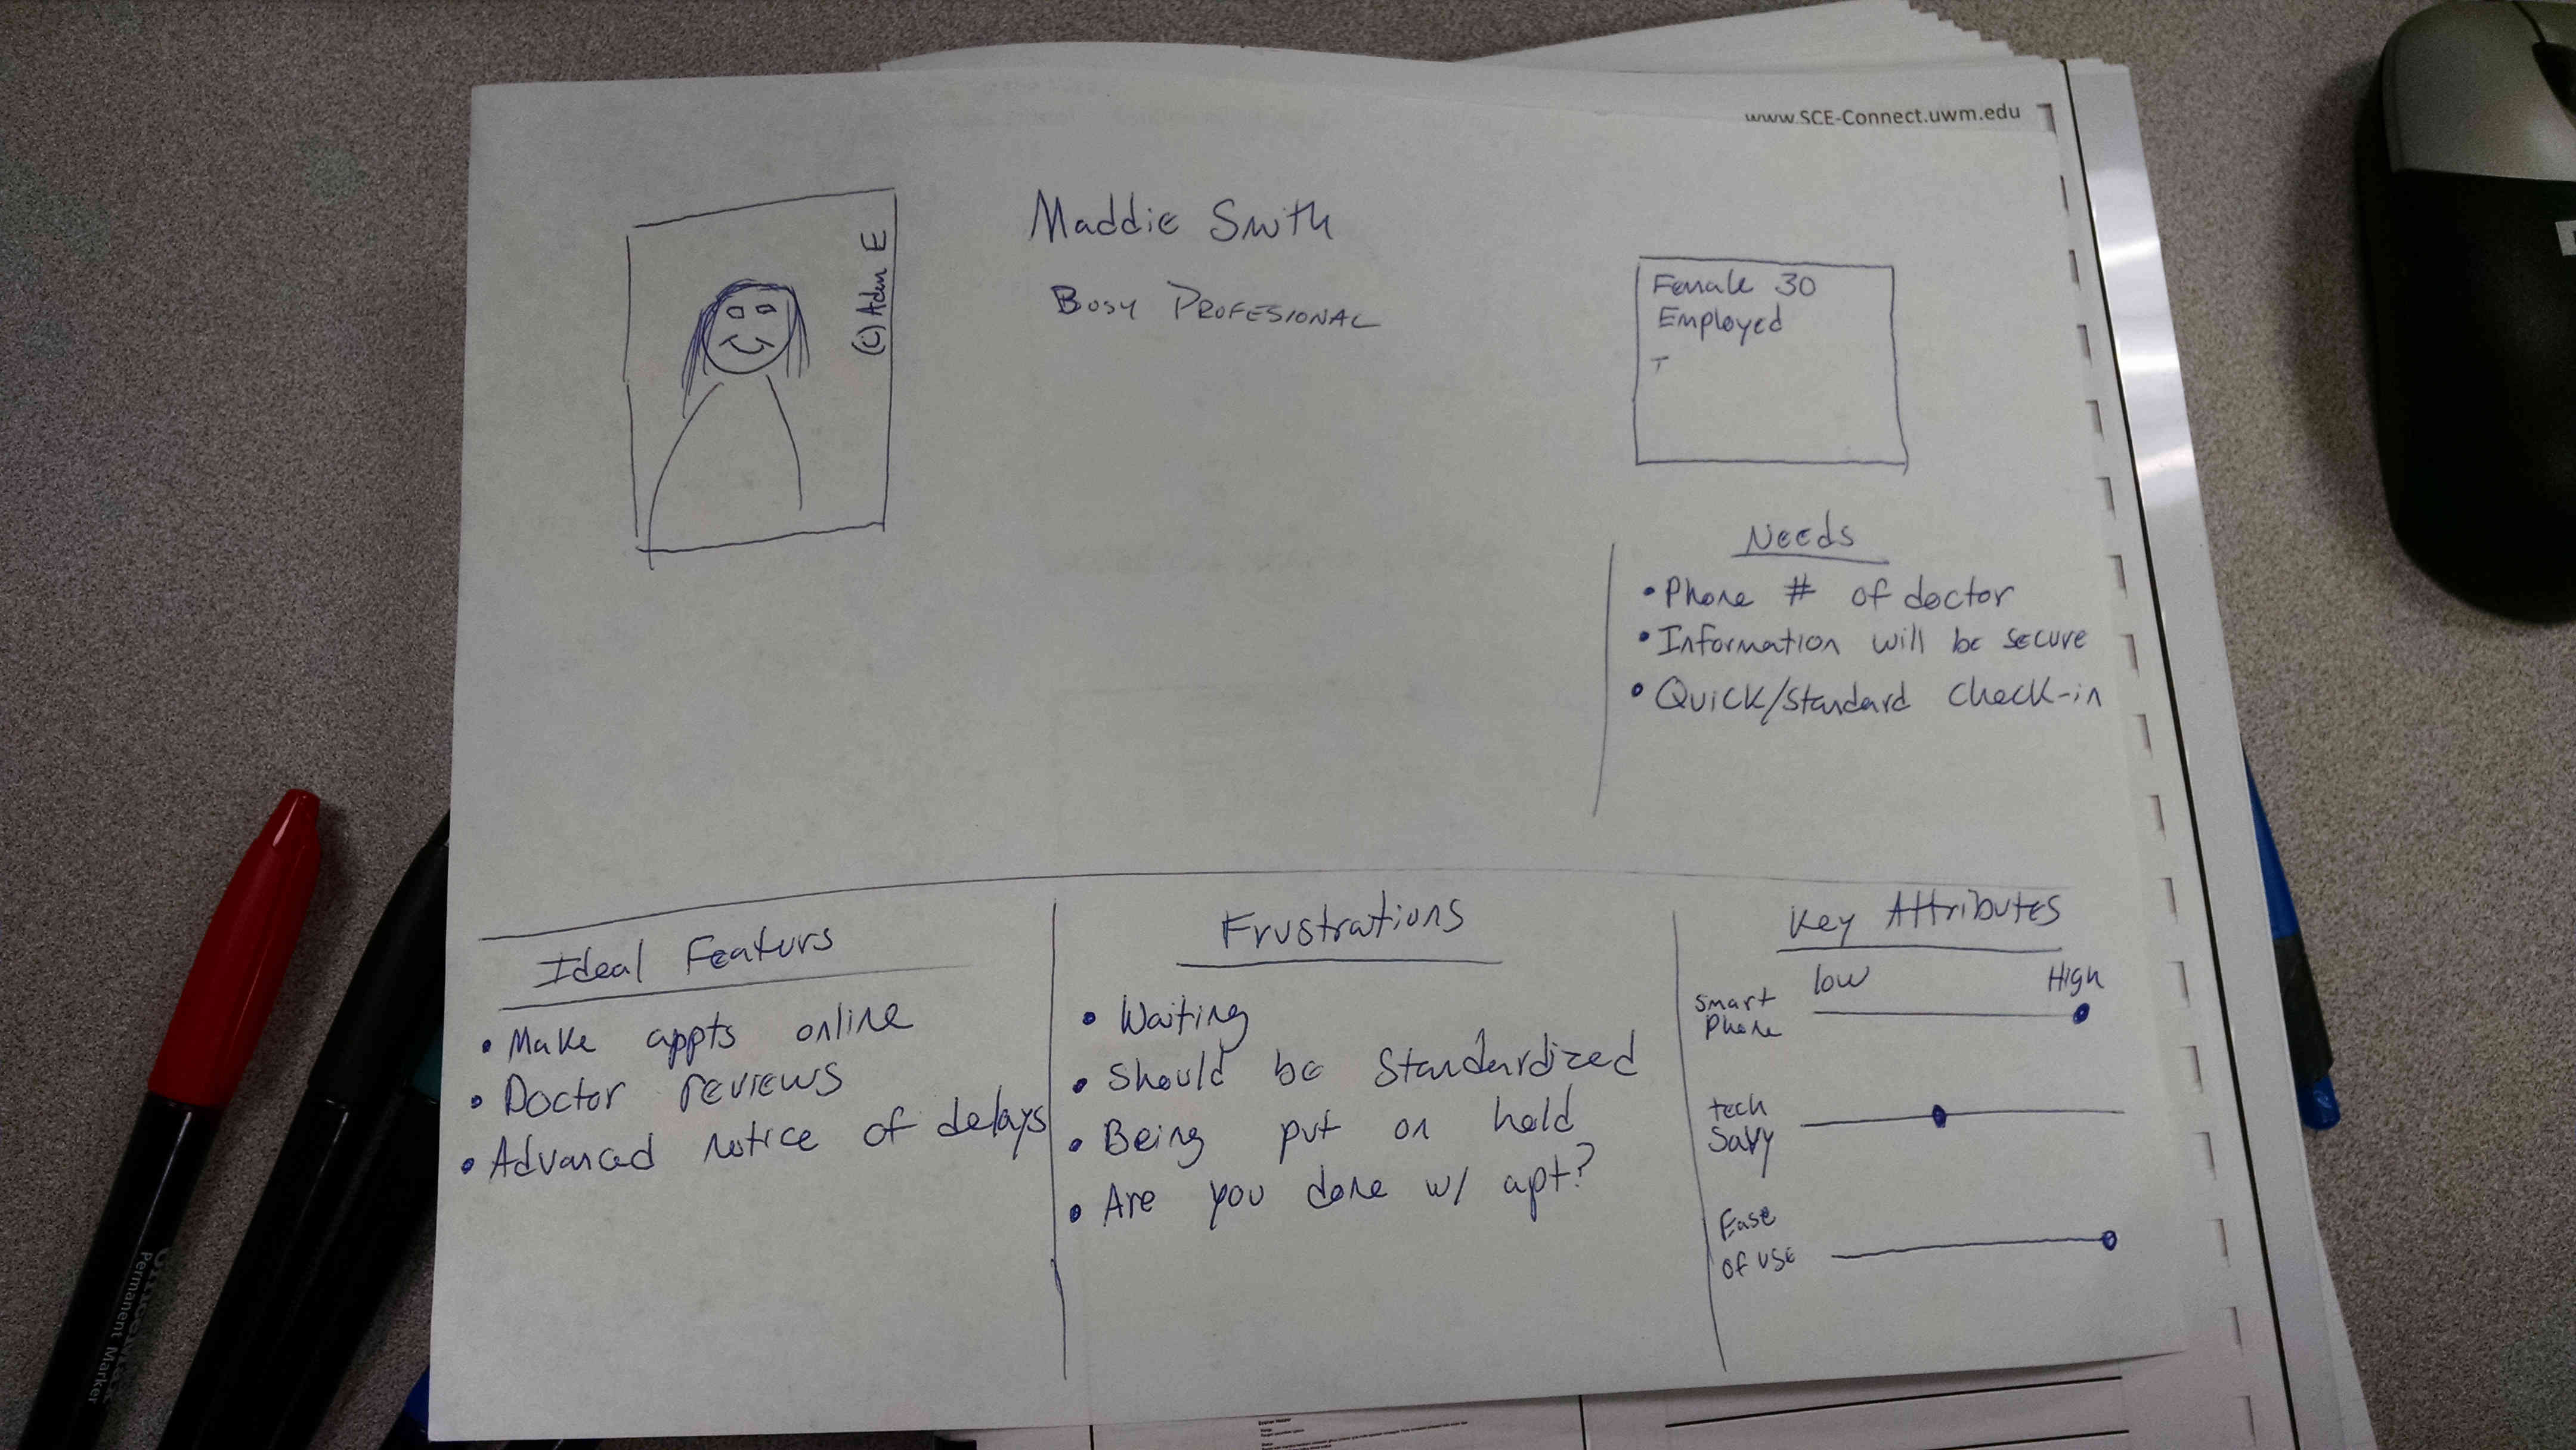 www.SCE-Connect.uwm.edu
(c) Adam E
Maddie Smith
Busy Profesional
Female 30
Employed
T
Needs
• Phone # of doctor
• Information will be secure
• Quick/Standard check-in
Ideal Featurs
• Make appts online
• Doctor reviews
• Advanced notice of delays
Frustrations
• Waiting
• Should be Standardized
• Being put on hold
• Are you done w/ apt?
Key Attributes
low High
Smart
Phone
tech
Savy
Ease
of use
Permanent Marker